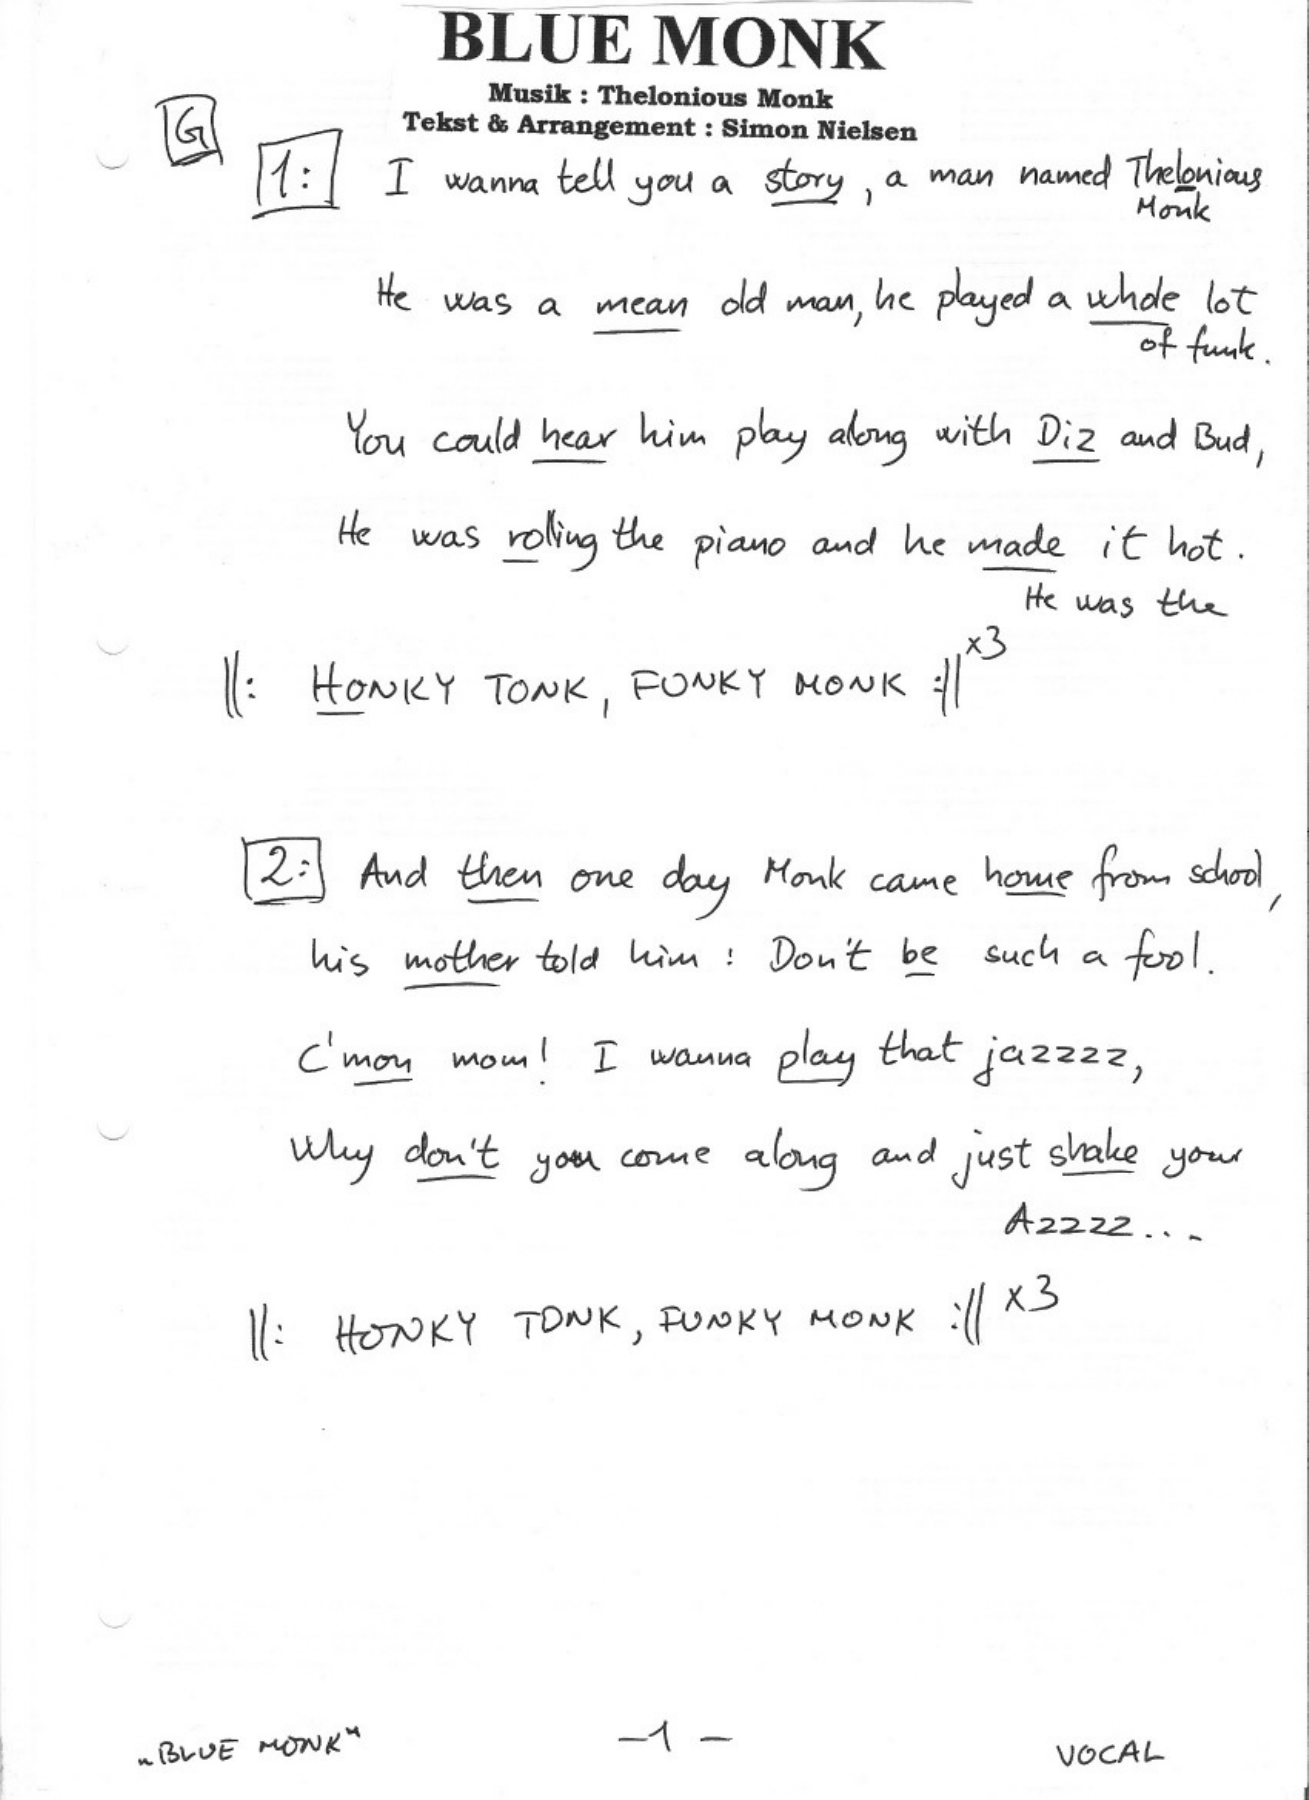 BLUE MONK
Musik : Thelonious Monk
Tekst & Arrangement : Simon Nielsen
G
1: I wanna tell you a story, a man named Thelonious
Monk
He was a mean old man, he played a whole lot
of funk.
You could hear him play along with Diz and Bud,
He was rolling the piano and he made it hot.
He was the
||: HONKY TONK, FUNKY MONK :|| x3
2: And then one day Monk came home from school,
his mother told him : Don't be such a fool.
C'mon mom! I wanna play that jazzzz,
Why don't you come along and just shake your
Azzzz...
||: HONKY TONK, FUNKY MONK :|| x3
„BLUE MONK" -1- VOCAL